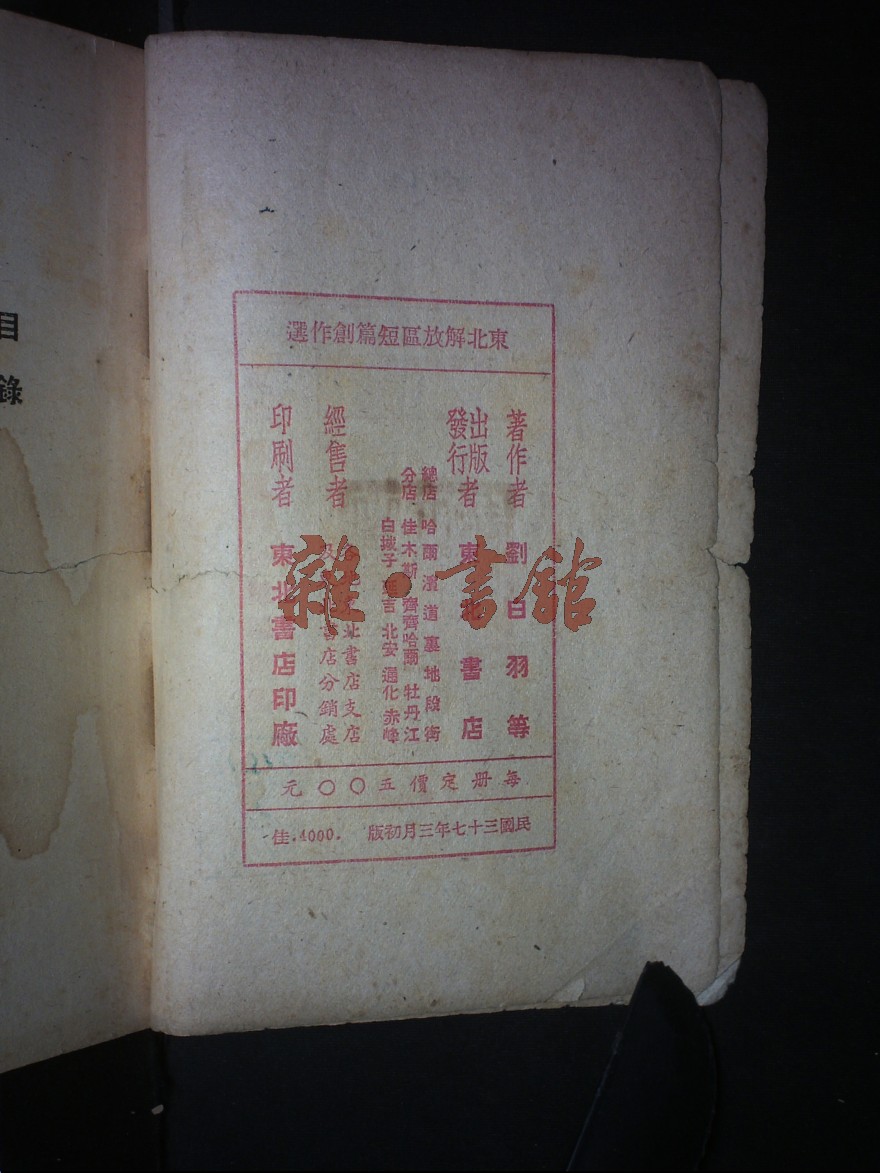 目錄
東北解放區短篇創作選
著作者 劉白羽等
出版
發行者 東北書店
總店 哈爾濱道裏地段街
分店 佳木斯 齊齊哈爾 牡丹江
白城子 吉 北安 通化 赤峰
經售者
北書店支店
及 書店分銷處
印刷者 東北書店印廠
每冊定價五〇〇元
民國三十七年三月初版 佳.4000.
雜·書館